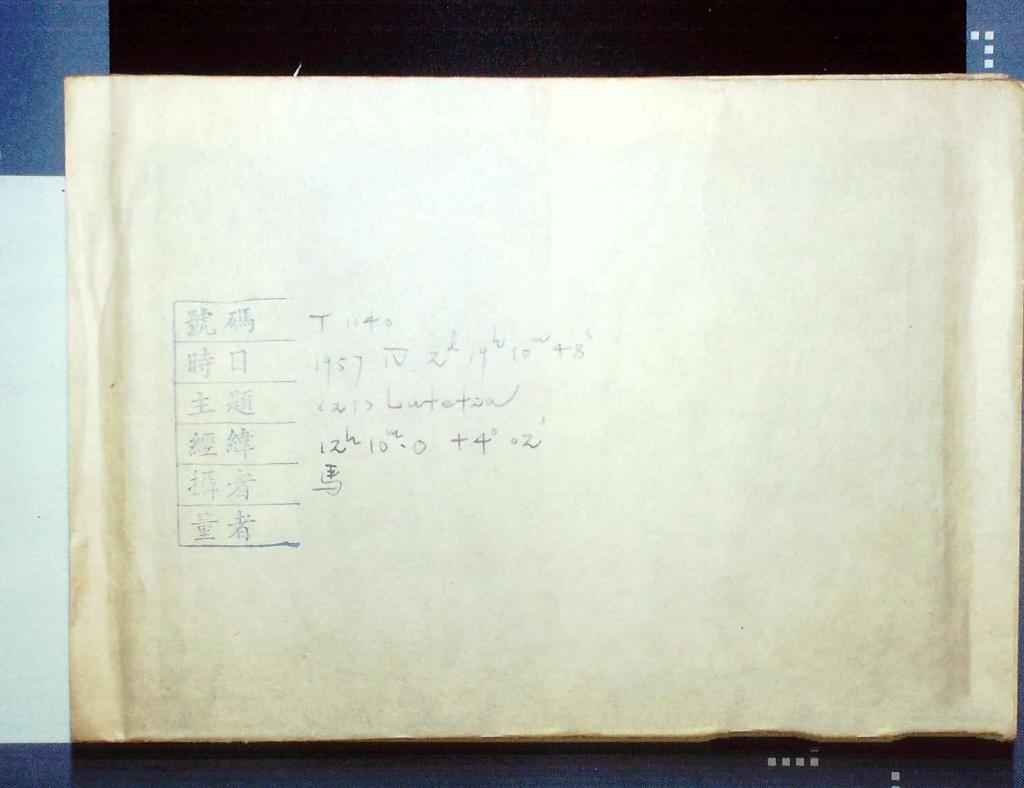 號碼 T 1140
時日 1957 IV. 2ᵈ 19ʰ 10ᵐ +8ˢ
主題 (21) Lutetza
經緯 12ʰ 10ᵐ.0 +4° 02'
攝者 馬
量者